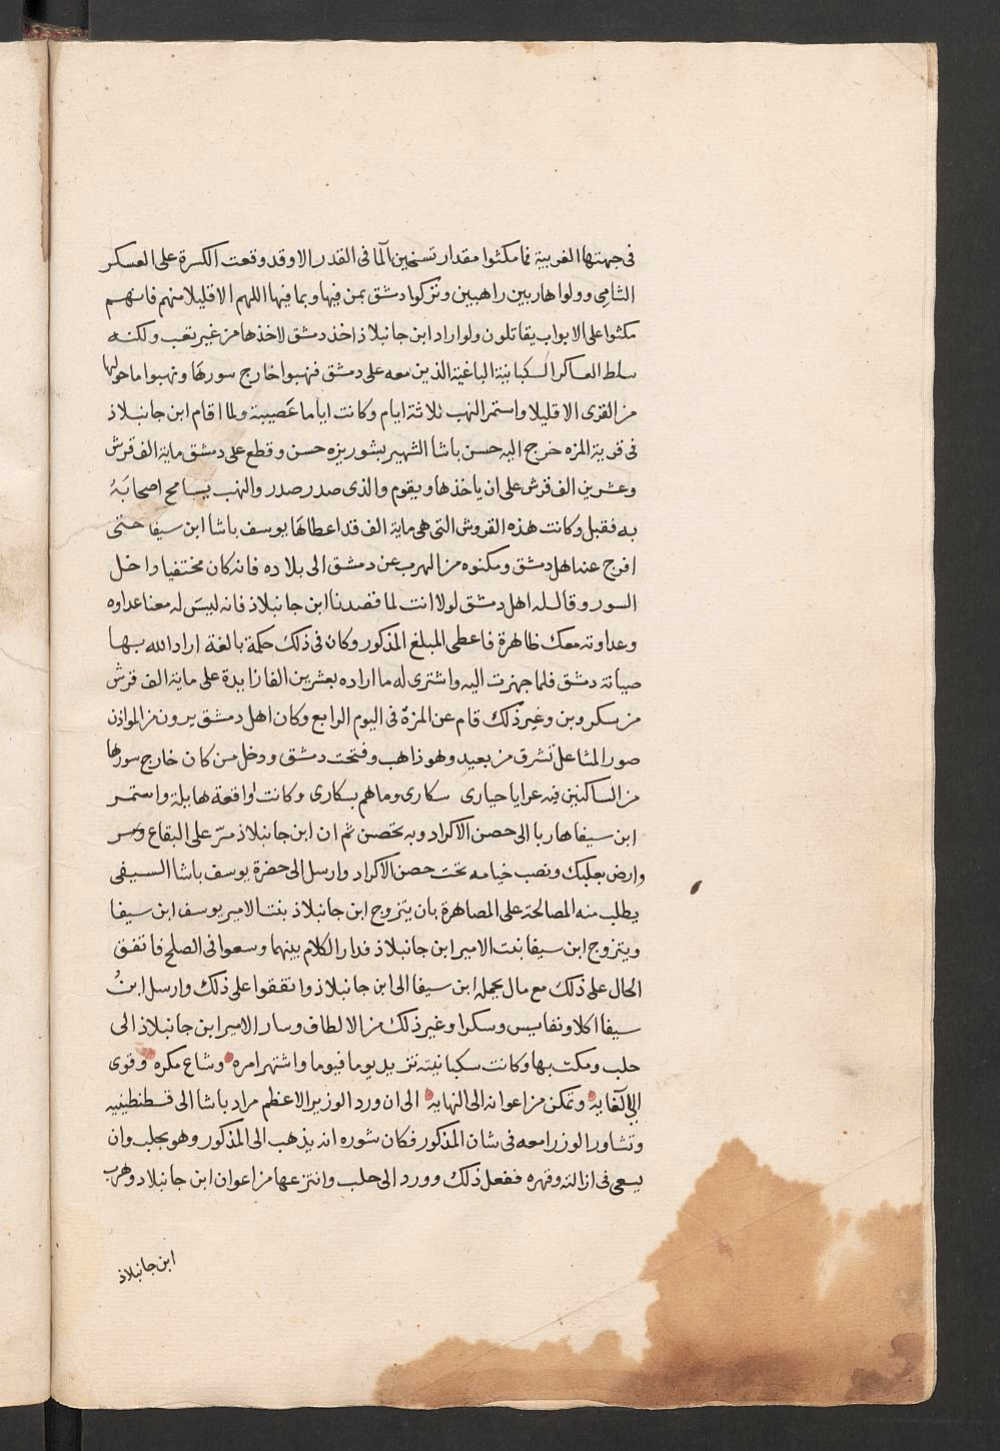 فى جهتها الغربية فما مكثوا مقدار تسخين الما فى القدر الا وقد وقعت الكسرة على العسكر
الشامى وولوا هاربين راهبين وتركوا دمشق بمن فيها وبما فيها اللهم الا قليلا منهم فانهم
مكثوا على الابواب يقاتلون ولو اراد ابن جانبلاذ اخذ دمشق لاخذها من غير تعب ولكنه
سلط العساكر السكبانية الباغية الذين معه على دمشق فنهبوا خارج سورها ونهبوا ما حولها
من القرى الا قليلا واستمر النهب ثلاثة ايام وكانت اياما عصيبة ولما اقام ابن جانبلاذ
فى قرية المزه خرج اليه حسن باشا الشهير بشوريزه حسن وقطع على دمشق ماية الف قرش
وعشرين الف قرش على ان ياخذها ويقوم والذى صدر صدر والنهب يسامح اصحابَهُ
به فقبل وكانت هذه القروش التى هى ماية الف قد اعطاها يوسف باشا ابن سيفا حتى
افرج عنه اهل دمشق ومكنوه من الهرب عن دمشق الى بلاده فانه كان مختفيا داخل
السور وقال له اهل دمشق لولا انت لما قصدنا ابن جانبلاذ فانه ليس له معنا عداوه
وعداوته معك ظاهرة فاعطى المبلغ المذكور وكان فى ذلك حكمة بالغة اراد الله بها
صيانة دمشق فلما جهزت اليه واشترى له ما اراده بعشرين الفا زايدة على ماية الف قرش
من سكر وبن وغير ذلك قام عن المزة فى اليوم الرابع وكان اهل دمشق يرون من المواذن
صور المشاعل تشرق من بعيد وهو ذاهب وفتحت دمشق ودخل من كان خارج سورها
من الساكنين فيه عرايا حيارى سكارى وما هم بسكارى وكانت واقعة هايلة واستمر
ابن سيفا هاربا الى حصن الاكراد وبه تحصن ثم ان ابن جانبلاذ مرّ على البقاع
وارض بعلبك ونصب خيامه تحت حصن الاكراد وارسل الى حضرة يوسف باشا السيفى
يطلب منه المصالحة على المصاهرة بان يتزوج ابن جانبلاذ بنت الامير يوسف ابن سيفا
ويتزوج ابن سيفا بنت الامير ابن جانبلاذ فدار الكلام بينهما وسعوا فى الصلح فاتفق
الحال على ذلك مع مال يحمله ابن سيفا الى ابن جانبلاذ واتفقوا على ذلك وارسل ابنُ
سيفا اكلا ونفايس وسكرا وغير ذلك من الالطاف وسار الامير ابن جانبلاذ الى
حلب ومكث بها وكانت سكبانيته تزيد يوما فيوما واشتهر امره وشاع مكره وقوى
الى الغايه وتمكن من اعوانه الى النهايه الى ان ورد الوزير الاعظم مراد باشا الى قسطنطينيه
وتشاور الوزرا معه فى شان المذكور فكان شوره انه يذهب الى المذكور وهو بحلب وان
يسعى فى ازالته وقهره ففعل ذلك وورد الى حلب وانتزعها من اعوان ابن جانبلاد وهرب
ابن جانبلاذ